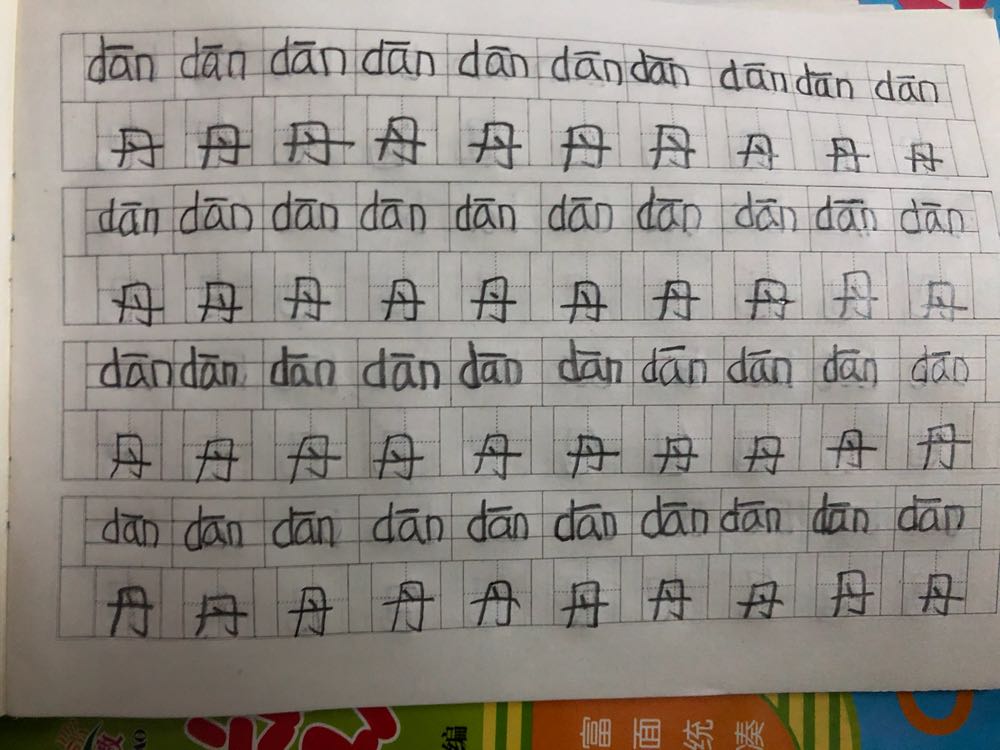 dān dān dān dān dān dān dān dān dān dān
丹 丹 丹 丹 丹 丹 丹 丹 丹 丹
dān dān dān dān dān dān dān dān dān dān
丹 丹 丹 丹 丹 丹 丹 丹 丹 丹
dān dān dān dān dān dān dān dān dān dān
丹 丹 丹 丹 丹 丹 丹 丹 丹 丹
dān dān dān dān dān dān dān dān dān dān
丹 丹 丹 丹 丹 丹 丹 丹 丹 丹
编
富 面 统 凑